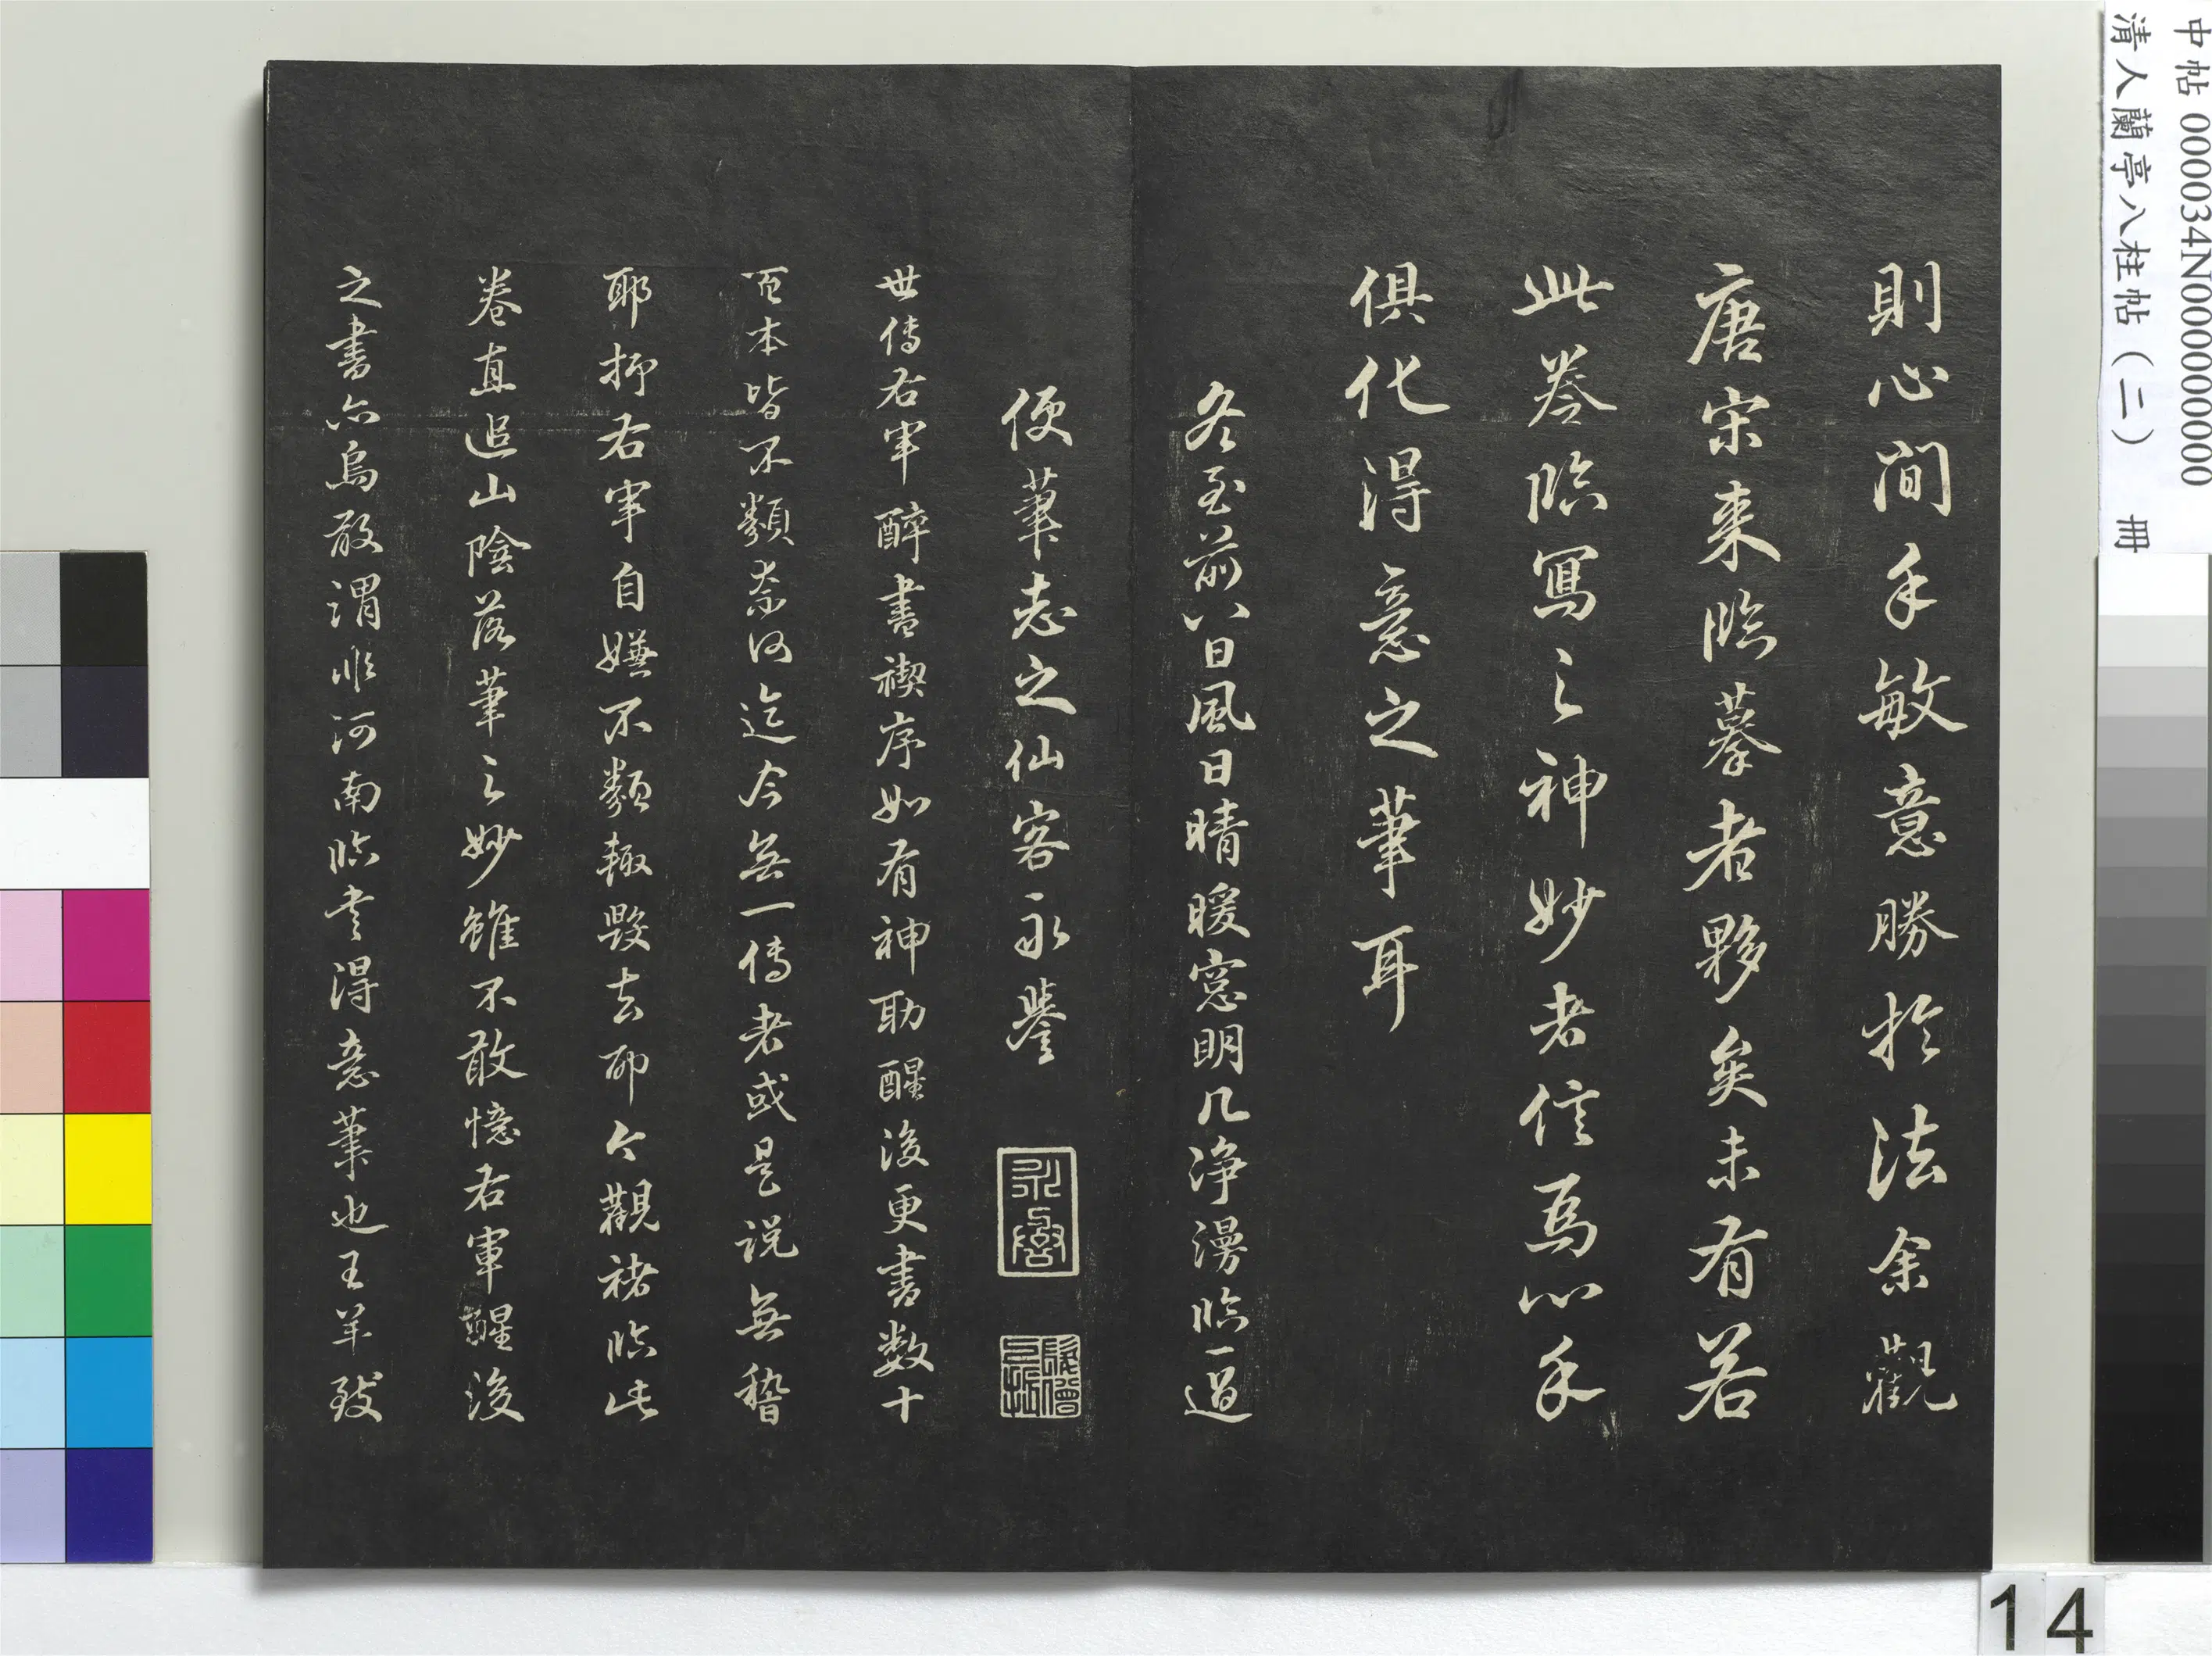 中帖 000034N000000000
清人蘭亭八柱帖（二） 冊
則心閒手敏意勝於法余觀
唐宋來臨摹者夥矣未有若
此卷臨寫之神妙者信為心手
俱化得意之筆耳
冬至前八日風日晴暖窓明几浄漫臨一過
便筆志之仙客永譽
永譽
世傳右軍醉書禊序如有神助醒後更書数十
百本皆不類奈何迄今無一傳者或是説無稽
耶抑右軍自嫌不類輙毀去耶今觀褚臨此
卷直追山陰落筆之妙雖不敢憶右軍醒後
之書亦烏敢謂非河南臨書得意筆也王羊
14